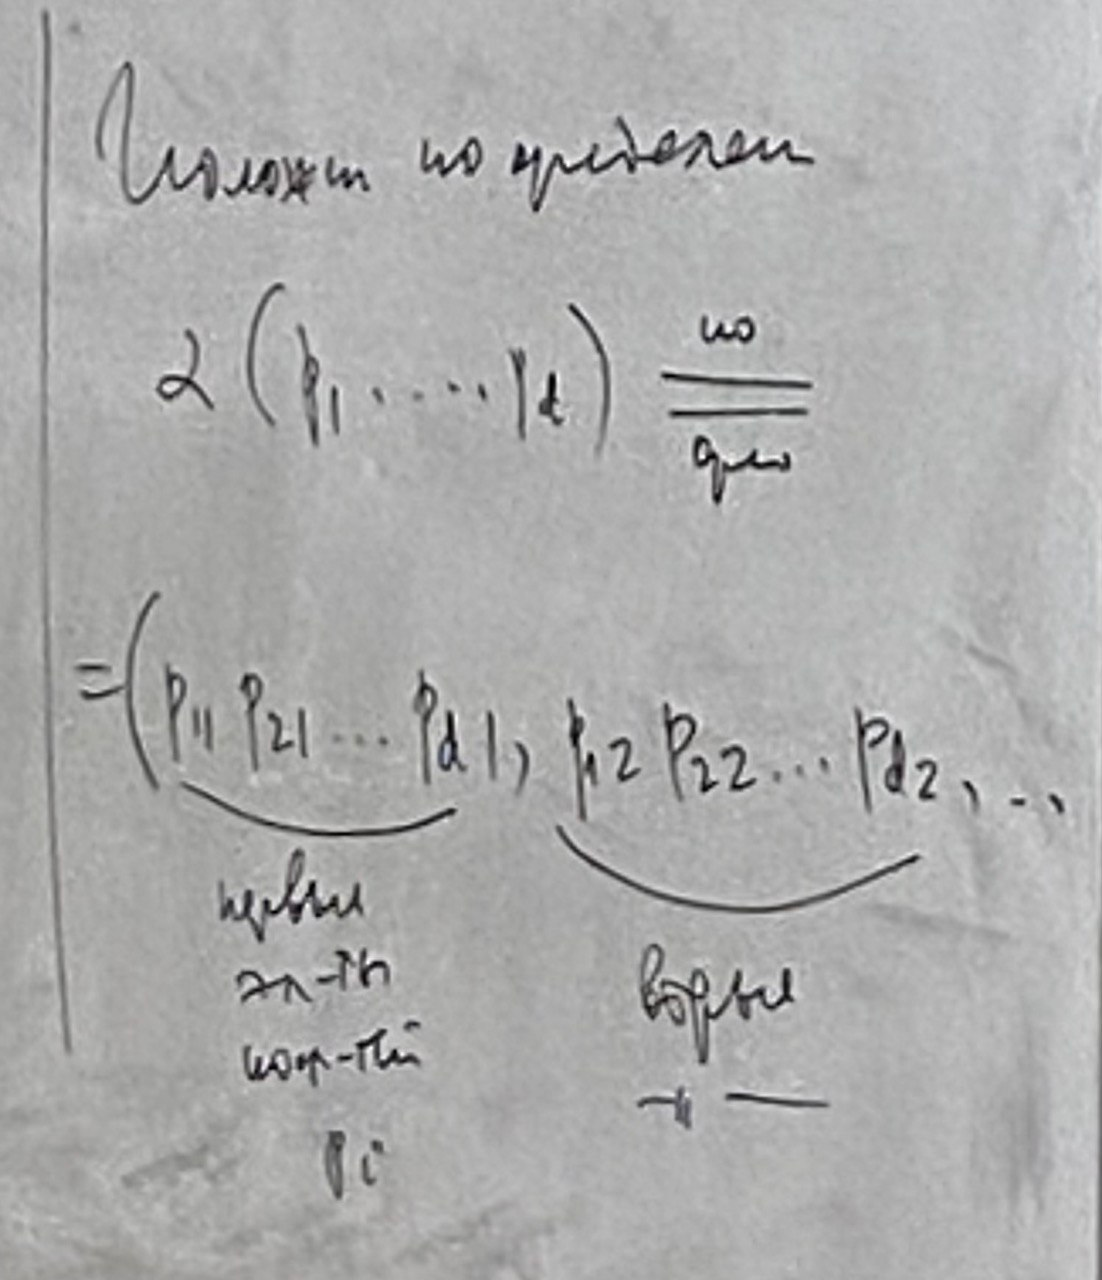 Положим по определен
α (p₁ ..... p_d) = по опр
= (p₁₁ p₂₁ ... p_d1, p₁₂ p₂₂ ... p_d2, ...
первые
эл-ты
кор-тей
pᵢ
вторые
—〃—